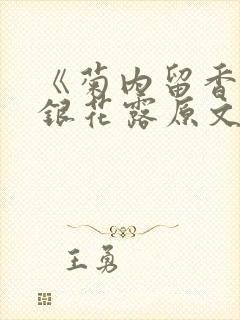 《菊内留香
银花露原文
王勇